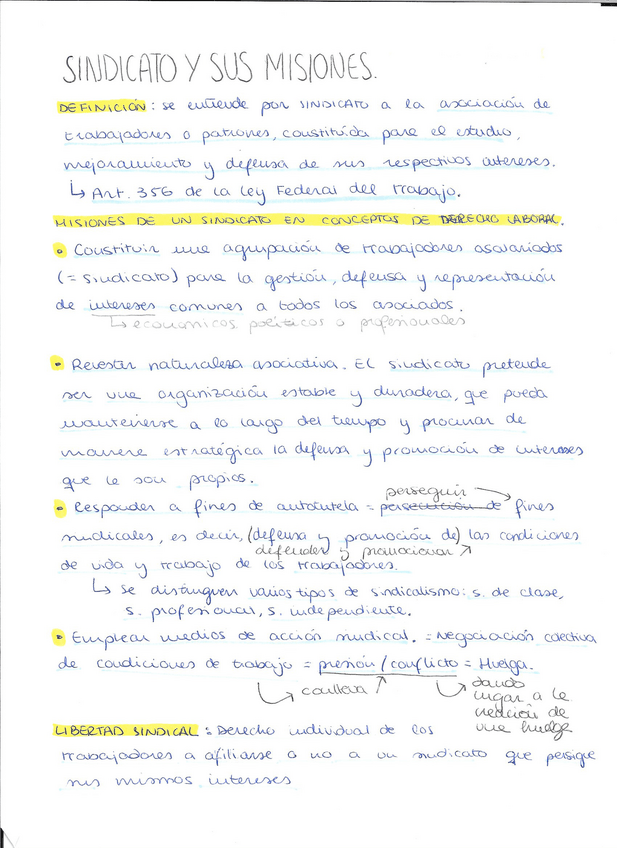 SINDICATO Y SUS MISIONES.
DEFINICIÓN: se entiende por SINDICATO a la asociación de
trabajadores o patrones, constituida para el estudio,
mejoramiento y defensa de sus respectivos intereses.
↳ Art. 356 de la Ley Federal del trabajo.
MISIONES DE UN SINDICATO EN CONCEPTOS DE DERECHO LABORAL.
• Constituir una agrupación de trabajadores asalariados
(= sindicato) para la gestión, defensa y representación
de intereses comunes a todos los asociados.
↳ económicos, políticos o profesionales
• Revestir naturaleza asociativa. El sindicato pretende
ser una organización estable y duradera, que pueda
mantenerse a lo largo del tiempo y procurar de
manera estratégica la defensa y promoción de intereses
que le son propios.
perseguir
• Responder a fines de autotutela = persecución de fines
sindicales, es decir, (defensa y promoción de) las condiciones
defender y promocionar
de vida y trabajo de los trabajadores.
↳ se distinguen varios tipos de sindicalismo: s. de clase,
s. profesional, s. independiente.
• Emplear medios de acción sindical. = Negociación colectiva
de condiciones de trabajo = presión / conflicto = Huelga.
↳ conlleva
↳ dando
lugar a la
creación de
una huelga
LIBERTAD SINDICAL: Derecho individual de los
trabajadores a afiliarse o no a un sindicato que persigue
sus mismos intereses